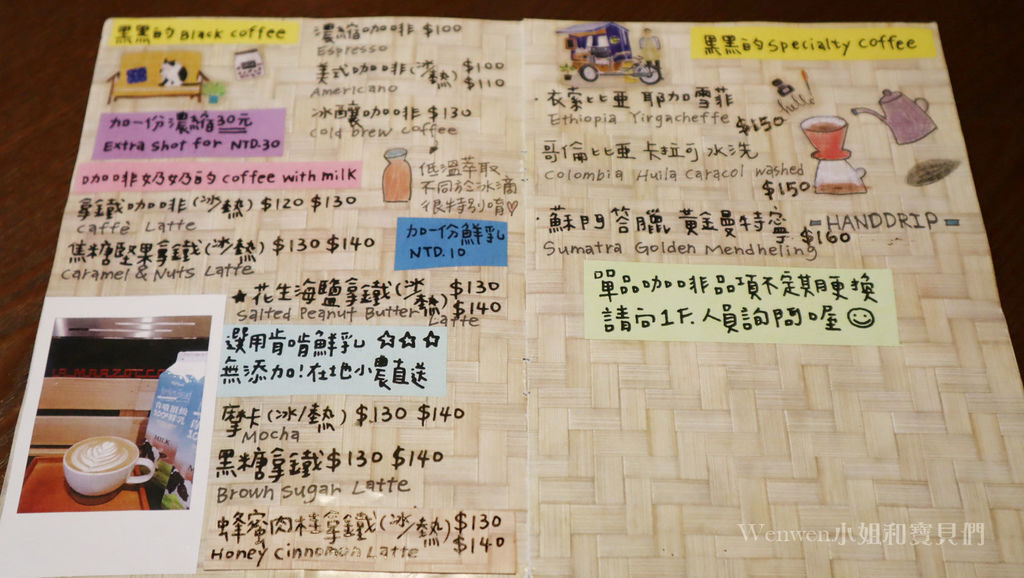 黑黑的Black coffee
濃縮咖啡 $100
Espresso
美式咖啡(冰/熱) $100
$110
Americano
冰釀咖啡 $130
Cold brew coffee
加一份濃縮30元
Extra shot for NTD.30
低溫萃取
不同於冰滴
很特別唷♡
咖啡奶奶的 coffee with milk
拿鐵咖啡(冰/熱) $120 $130
Caffè Latte
加一份鮮乳
NTD.10
焦糖堅果拿鐵(冰/熱) $130 $140
Caramel & Nuts Latte
★花生海鹽拿鐵(冰/熱) $130
$140
Salted Peanut Butter Latte
選用肯啃鮮乳 ☆☆☆
無添加!在地小農直送
摩卡(冰/熱) $130 $140
Mocha
黑糖拿鐵 $130 $140
Brown sugar Latte
蜂蜜肉桂拿鐵(冰/熱) $130
$140
Honey Cinnamon Latte
黑黑的Specialty coffee
·衣索比亞 耶加雪菲
Ethiopia Yirgacheffe $150
hello
哥倫比亞 卡拉可 水洗
Colombia Huila Caracol washed
$150
·蘇門答臘 黃金曼特寧
HANDDRIP
Sumatra Golden Mendheling $160
單品咖啡品項不定期更換
請向1F.人員詢問喔☺
Wenwen小姐和寶貝們